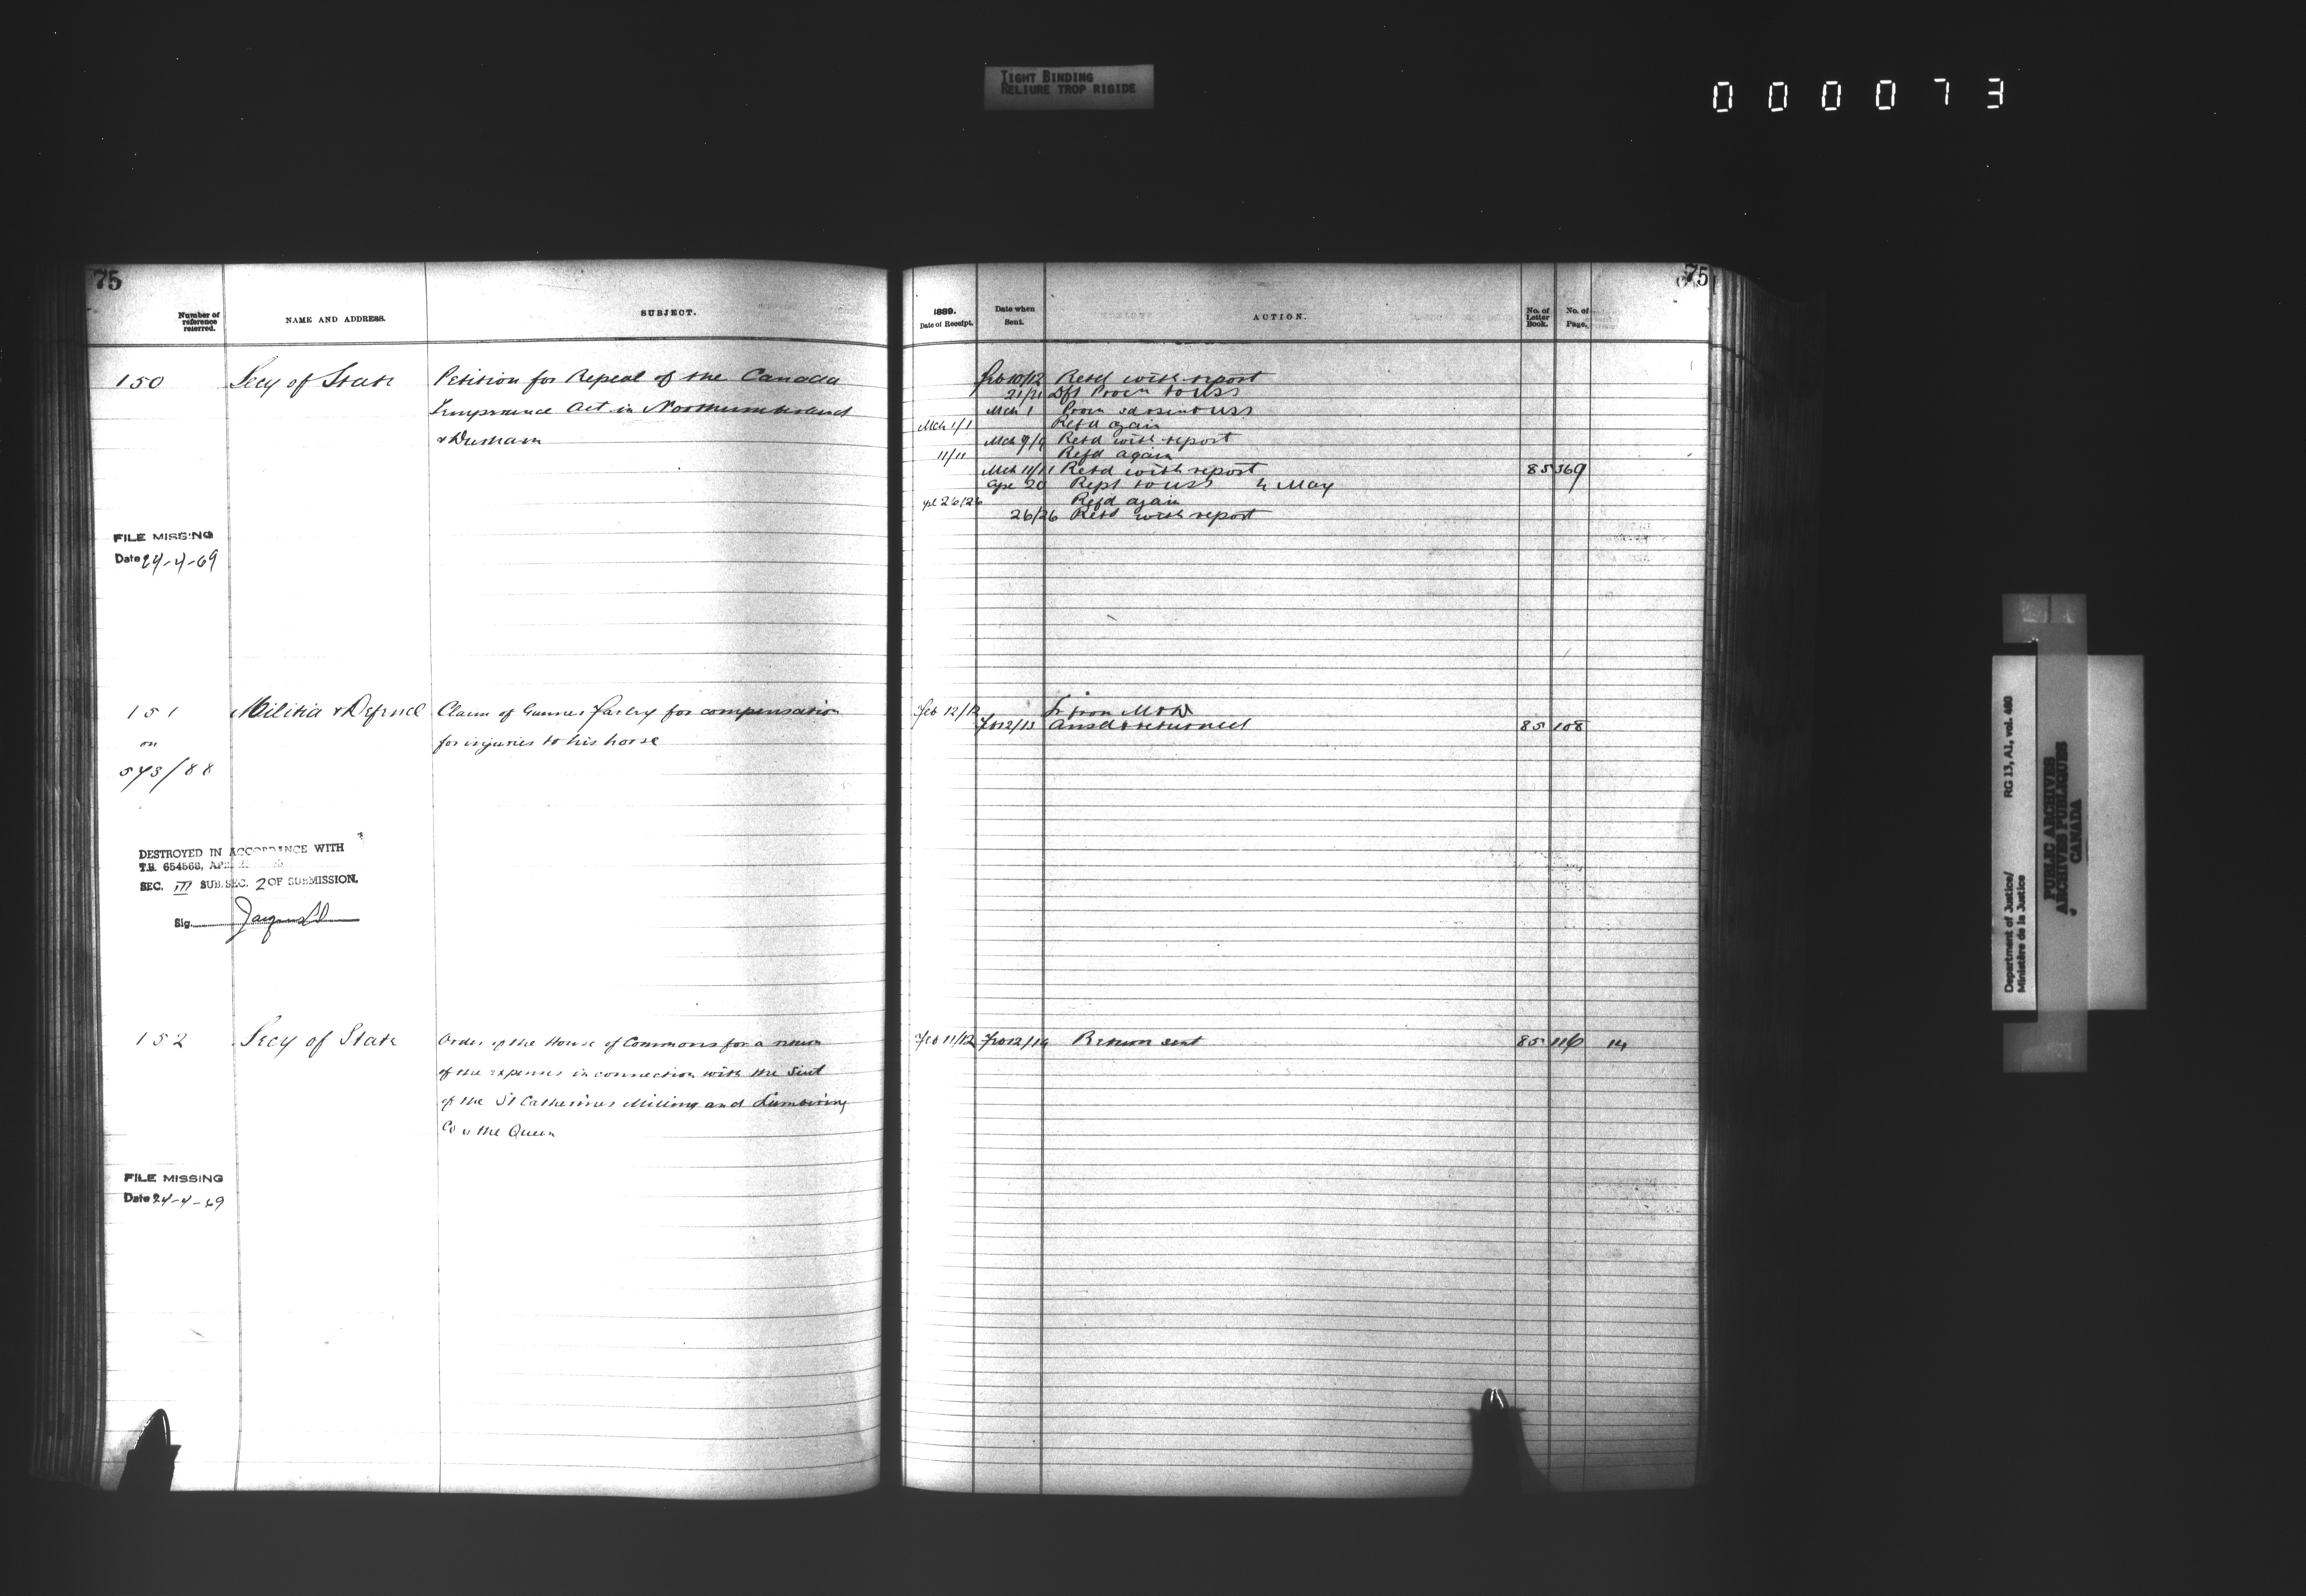 TIGHT BINDING
RELIURE TROP RIGIDE
000073
75
Number of reference referred.
NAME AND ADDRESS.
SUBJECT.
150 Secy of State Petition for Repeal of the Canada
Temperance Act in Northumberland
& Durham
FILE MISSING
Date 24-4-69
151 Militia & Defence Claim of Gunner Farley for compensation
on for injuries to his horse
543/88
DESTROYED IN ACCORDANCE WITH
T.B. 654568, APR
SEC. III SUB.SEC. 2 OF SUBMISSION.
Sig.
152 Secy of State Order of the House of Commons for a return
of the expenses in connection with the Suit
of the St Catherines Milling and Lumbering
Co v the Queen
FILE MISSING
Date 24-4-69
75
1889.
Date of Receipt.
Date when Sent.
ACTION.
No. of Letter Book.
No. of Page.
Feb 10/12 Retd with report
21/21 Dft Procn to USS
Mch 1 Procn to USS
Mch 1/1 Refd again
Mch 9/9 Retd with report
11/11 Refd again
Mch 11/11 Retd with report 85 369
Apl 20 Rept to USS 4 May
Apl 26/26 Refd again
26/26 Retd with report
Feb 12/12 Lr from M & D
Feb 12/13 Ansd & returned 85 108
Feb 11/12 Feb 12/14 Return sent 85 116 14
Department of Justice/
Ministère de la Justice
RG 13, A1, vol. 480
PUBLIC ARCHIVES
ARCHIVES PUBLIQUES
CANADA